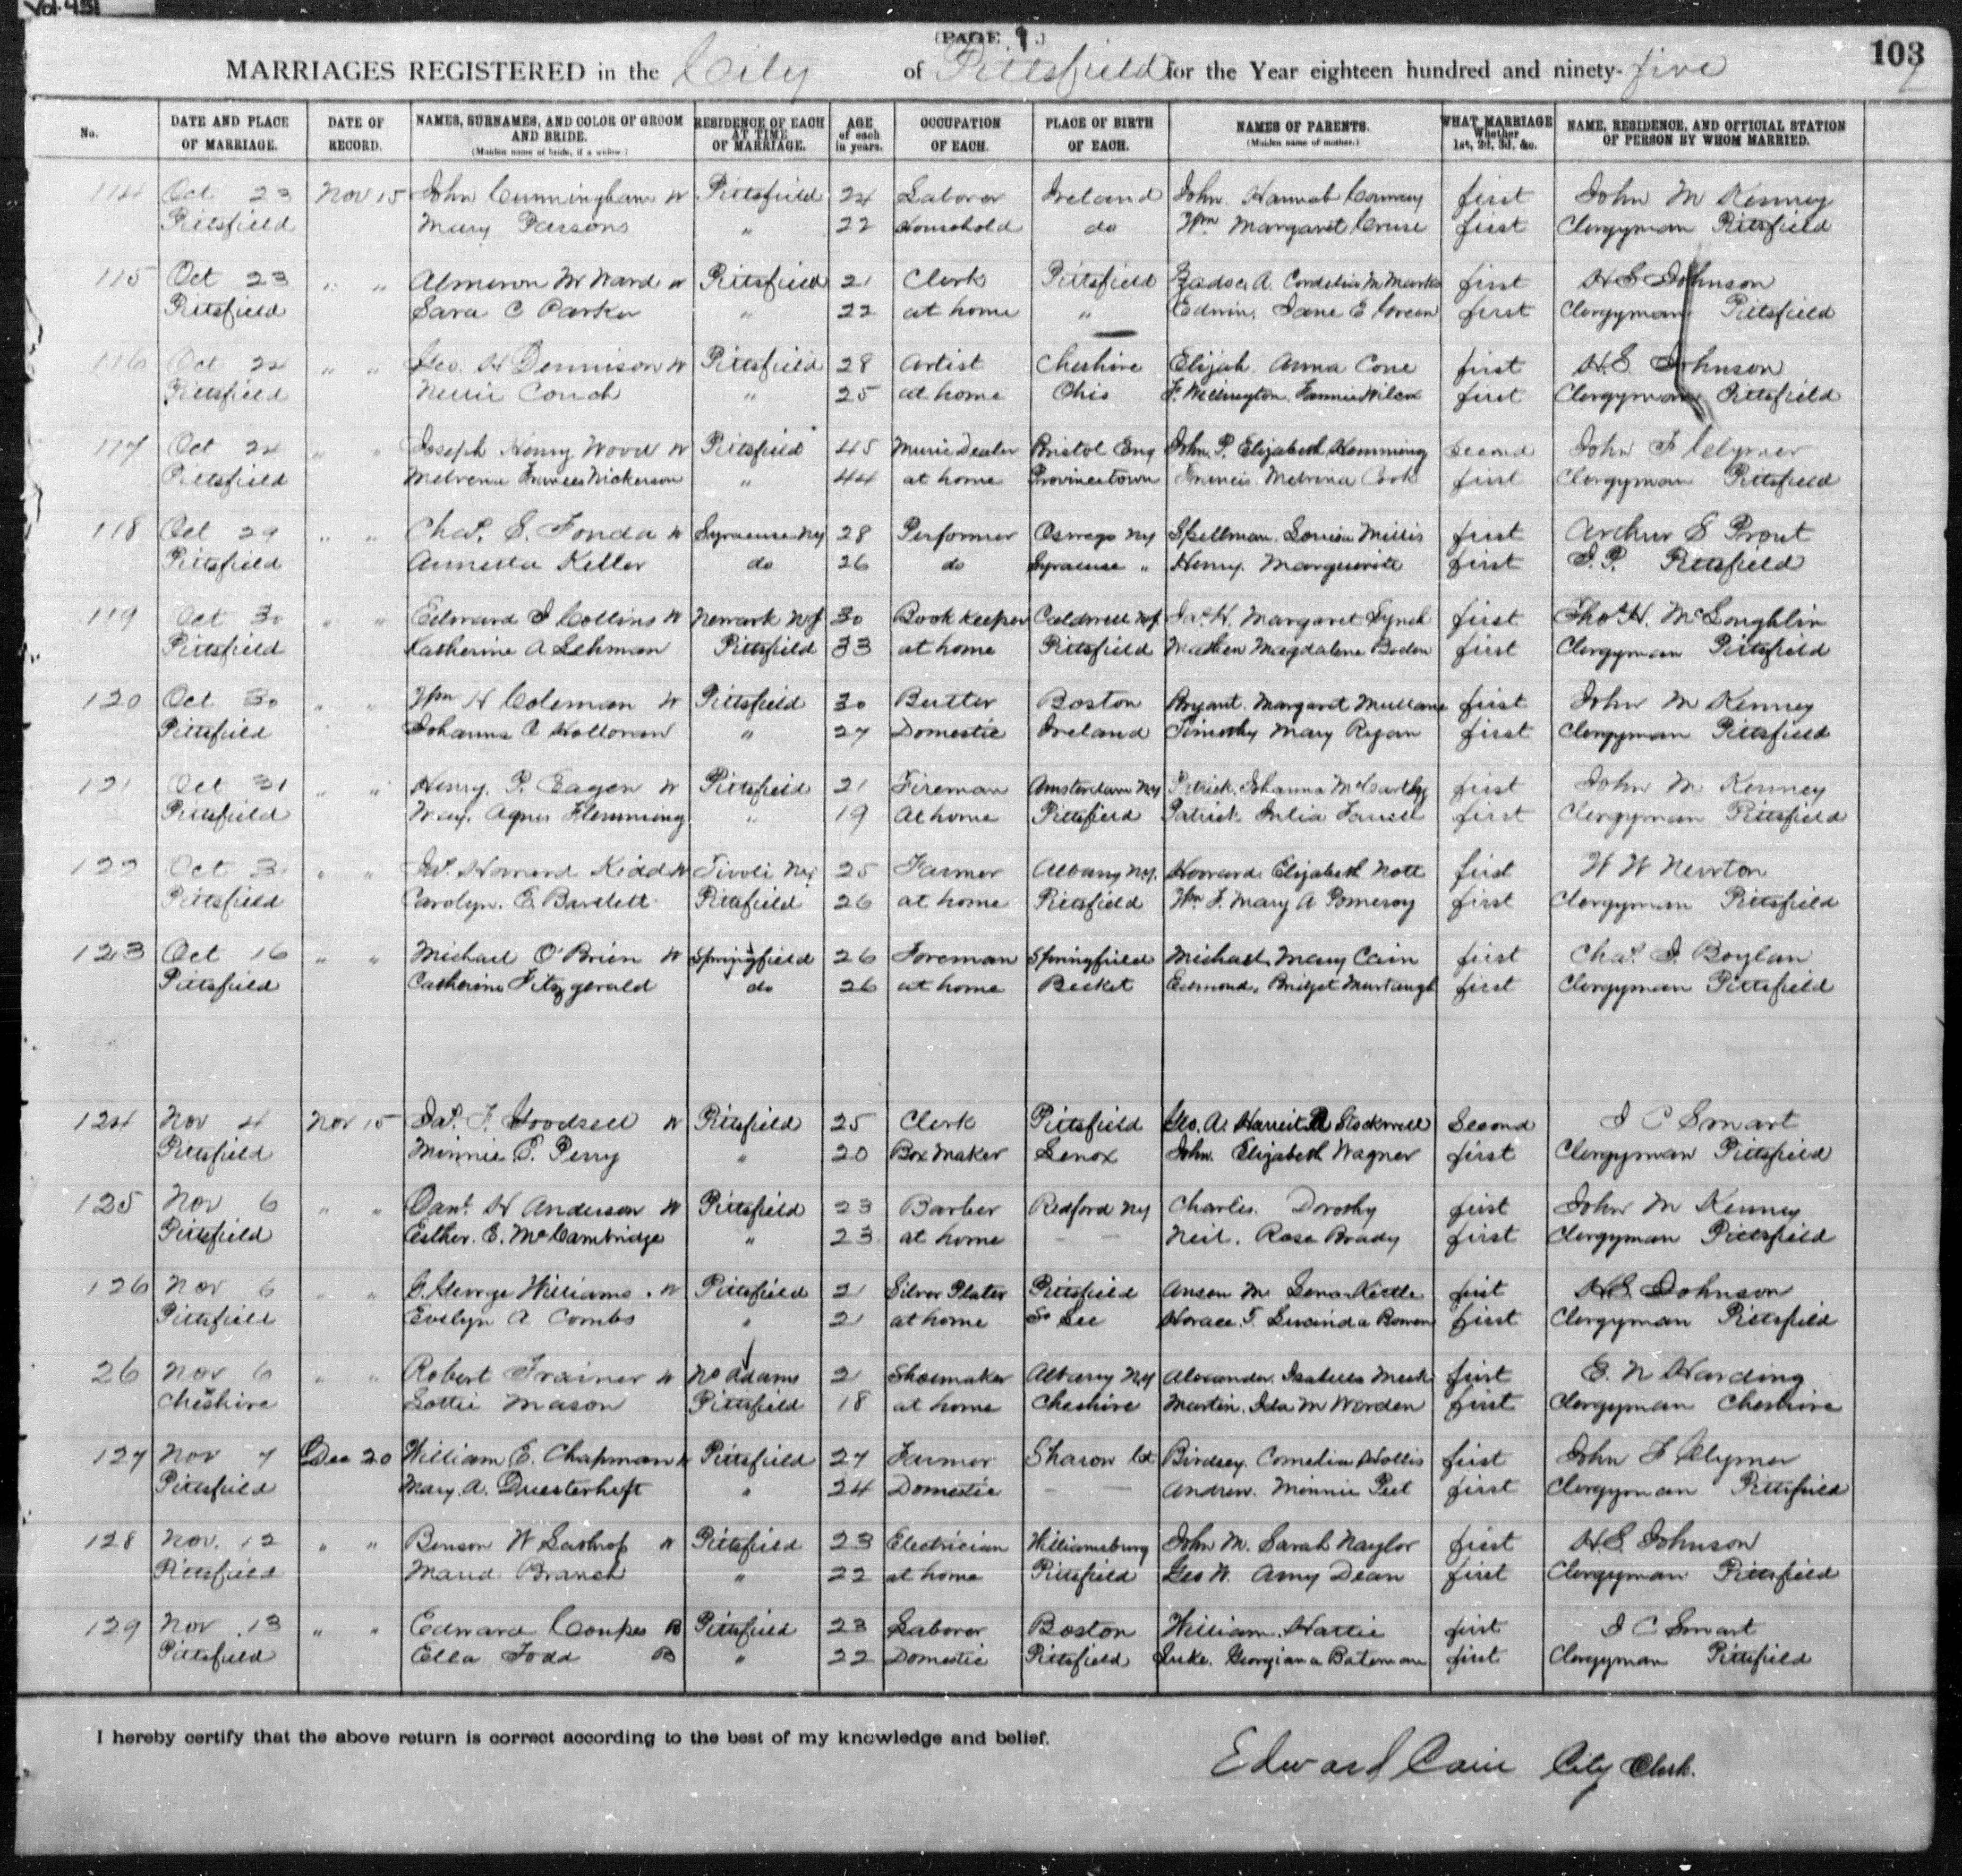 Vol. 451
(PAGE 9.)
103
MARRIAGES REGISTERED in the City of Pittsfield for the Year eighteen hundred and ninety-five
No. DATE AND PLACE OF MARRIAGE. DATE OF RECORD. NAMES, SURNAMES, AND COLOR OF GROOM AND BRIDE. (Maiden name of bride, if a widow.) RESIDENCE OF EACH AT TIME OF MARRIAGE. AGE of each in years. OCCUPATION OF EACH. PLACE OF BIRTH OF EACH. NAMES OF PARENTS. (Maiden name of mother.) WHAT MARRIAGE Whether 1st, 2d, 3d, &c. NAME, RESIDENCE, AND OFFICIAL STATION OF PERSON BY WHOM MARRIED.
114 Oct 23 Nov 15 John Cunningham W Pittsfield 24 Laborer Ireland John. Hannah Conway first John M Kenney
Pittsfield Mary Parsons " 22 Household do Wm Margaret Cruse first Clergyman Pittsfield
115 Oct 23 " " Almeron W Ward W Pittsfield 21 Clerk Pittsfield A. Cordelia M Marks first H S Johnson
Pittsfield Sara C Parker " 22 at home " Edwin. Jane E Green first Clergyman Pittsfield
116 Oct 24 " " Geo. H Dennison W Pittsfield 28 Artist Cheshire Elijah. Anna Cone first H.S. Johnson
Pittsfield Nellie Couch " 25 at home Ohio F. Wellington. Fannie Wilcox first Clergyman Pittsfield
117 Oct 24 " " Joseph Henry Wood W Pittsfield 45 Music Dealer Bristol Eng John. P. Elizabeth Hemming Second John F Clymer
Pittsfield Melvena Frances Nickerson " 44 at home Provincetown Francis. Melvina Cook first Clergyman Pittsfield
118 Oct 29 " " Chas. S. Fonda W Syracuse Ny 28 Performer Oswego Ny Spellman. Louisa Millis first Arthur S Prout
Pittsfield Annetta Keller do 26 do Syracuse " Henry. Marguerite first J.P. Pittsfield
119 Oct 30 " " Edward J Collins W Newark NJ 30 Book Keeper Caldwell NJ Jas. H. Margaret Lynch first Thos H. McLoughlin
Pittsfield Katherine A Lehman Pittsfield 33 at home Pittsfield Mathew Magdalene Boden first Clergyman Pittsfield
120 Oct 30 " " Wm H Coleman W Pittsfield 30 Butler Boston Bryant. Margaret Mullane first John M Kenney
Pittsfield Johanna C Holloran " 27 Domestic Ireland Timothy Mary Ryan first Clergyman Pittsfield
121 Oct 31 " " Henry. P. Eagen W Pittsfield 21 Fireman Amsterdam Ny Patrick. Johanna McCarthy first John M Kenney
Pittsfield Mary. Agnes Flemming " 19 At home Pittsfield Patrick Julia Farrell first Clergyman Pittsfield
122 Oct 31 " " Jas. Howard Kidd W Tivoli Ny 25 Farmer Albany Ny. Howard Elizabeth Nott first W W Newton
Pittsfield Carolyn. E. Bartlett Pittsfield 26 at home Pittsfield Wm F. Mary A Pomeroy first Clergyman Pittsfield
123 Oct 16 " " Michael O'Brien W Springfield 26 Foreman Springfield Michael. Mary Cain first Chas. J. Boylan
Pittsfield Catherine Fitzgerald do 26 at home Becket Edmond. Bridget Murtaugh first Clergyman Pittsfield
124 Nov 4 Nov 15 Jas. F. Goodsell W Pittsfield 25 Clerk Pittsfield Geo. A. Harriet Stockwell Second I C Smart
Pittsfield Minnie E. Perry " 20 Box Maker Lenox John. Elizabeth Wagner first Clergyman Pittsfield
125 Nov 6 " " Danl. H Anderson W Pittsfield 23 Barber Redford Ny Charles. Dorothy first John M Kenney
Pittsfield Esther. E. McCambridge " 23 at home — — Neil. Rose Brady first Clergyman Pittsfield
126 Nov 6 " " G. George Williams. W Pittsfield 21 Silver Plater Pittsfield Anson M. Lena Kittle first H.S. Johnson
Pittsfield Evelyn A Combs " 21 at home So Lee Horace. T. Lucinda Bowen first Clergyman Pittsfield
26 Nov 6 " " Robert Trainer W No Adams 21 Shoemaker Albany Ny Alexander. Isabella Meek first E. N Harding
Cheshire Lottie Mason Pittsfield 18 at home Cheshire Martin. Ida M Worden first Clergyman Cheshire
127 Nov 7 Dec 20 William E. Chapman W Pittsfield 27 Farmer Sharon Ct Birdsey. Cornelia Hollis first John F Clymer
Pittsfield Mary. A. Duesterhoft " 24 Domestic — — Andrew. Minnie Peet first Clergyman Pittsfield
128 Nov. 12 " " Benson W Lathrop W Pittsfield 23 Electrician Williamsburg John M. Sarah Naylor first H.S. Johnson
Pittsfield Maud Branch " 22 at home Pittsfield Geo W. Amy Dean first Clergyman Pittsfield
129 Nov. 13 " " Edward B Pittsfield 23 Laborer Boston William. Hattie first I C Smart
Pittsfield Ella Todd B " 22 Domestic Pittsfield Luke. Georgiana Bateman first Clergyman Pittsfield
I hereby certify that the above return is correct according to the best of my knowledge and belief.
Edward Cain City Clerk.